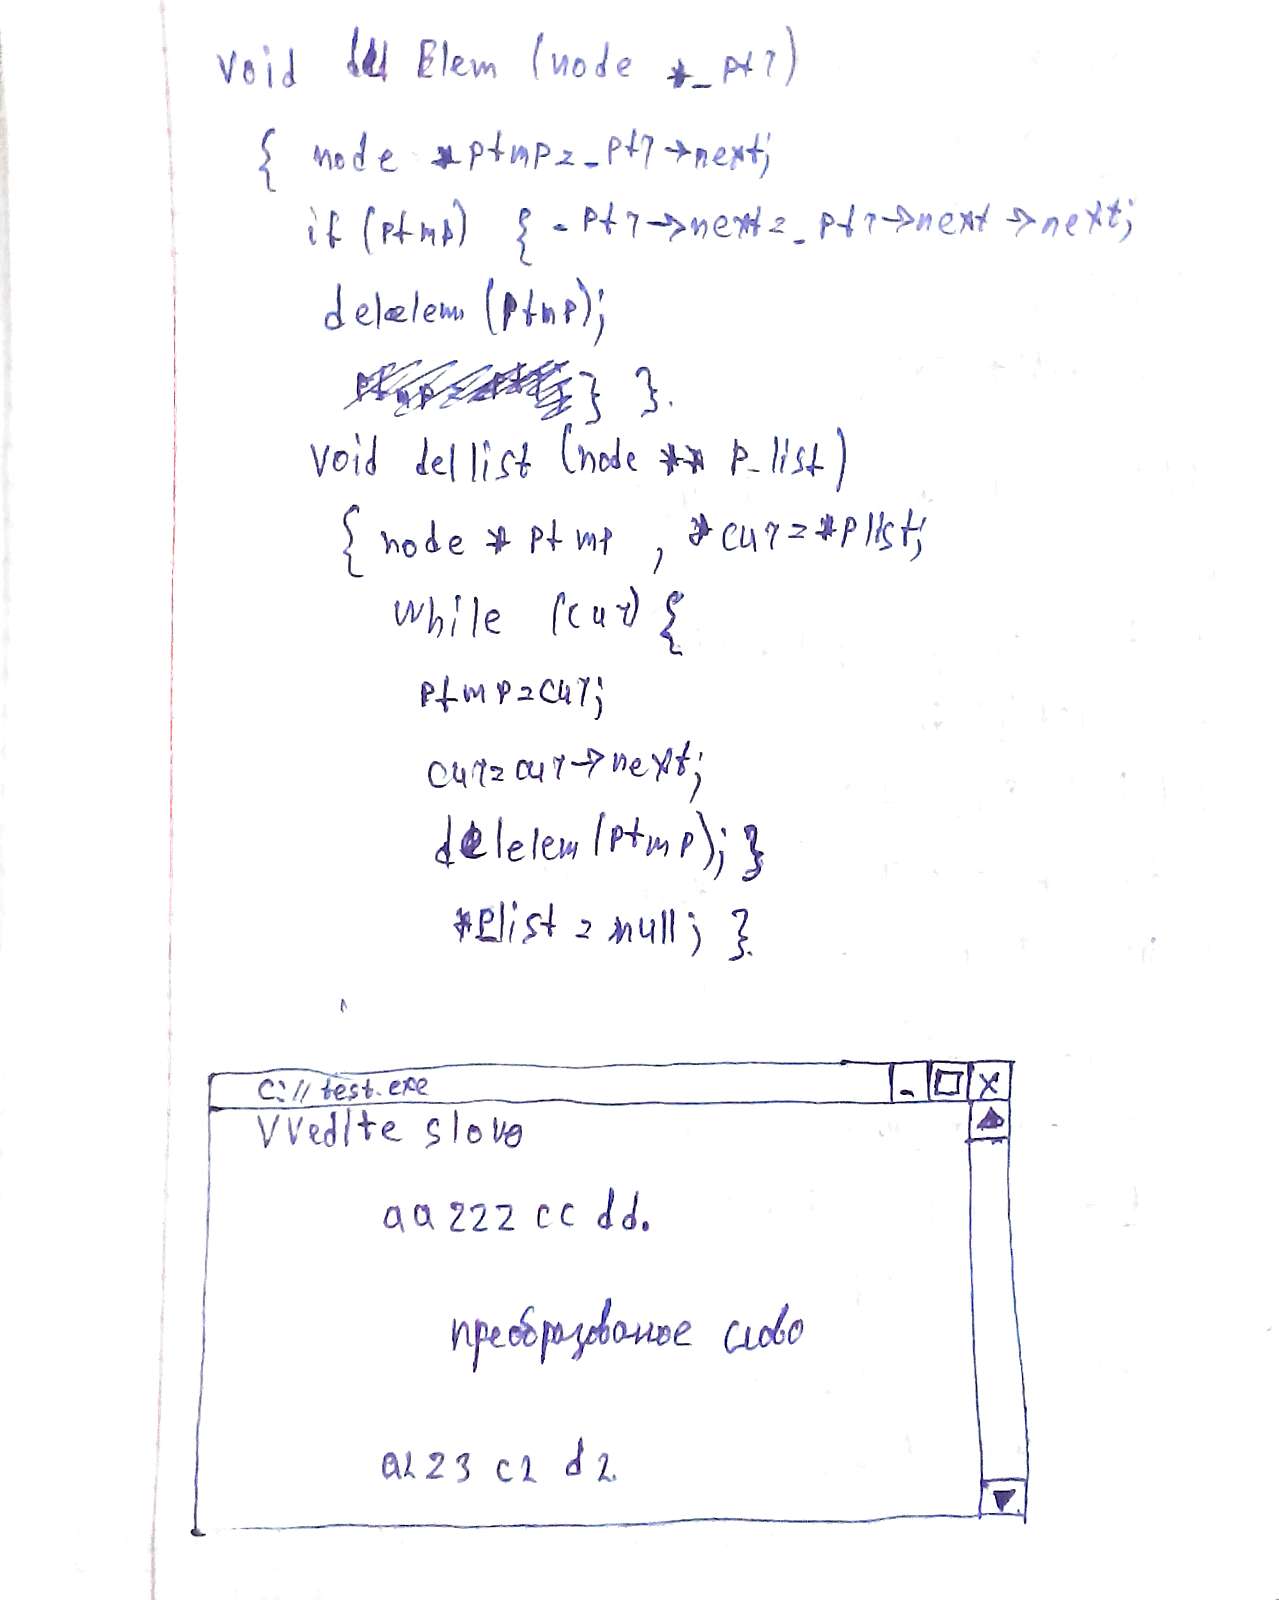 void del Elem (node *_ptr)
{ node *ptmp=_ptr->next;
if (ptmp) { _ptr->next=_ptr->next->next;
delelem (ptmp);
} }.
void dellist (node ** p_list)
{ node * ptmp , *cur=*plist;
while (cur) {
ptmp=cur;
cur=cur->next;
delelem (ptmp); }
*plist = null; }.
C:// test.exe - X
Vvedite slovo
aa222 cc dd.
преобразованое слово
a223 c2 d2.